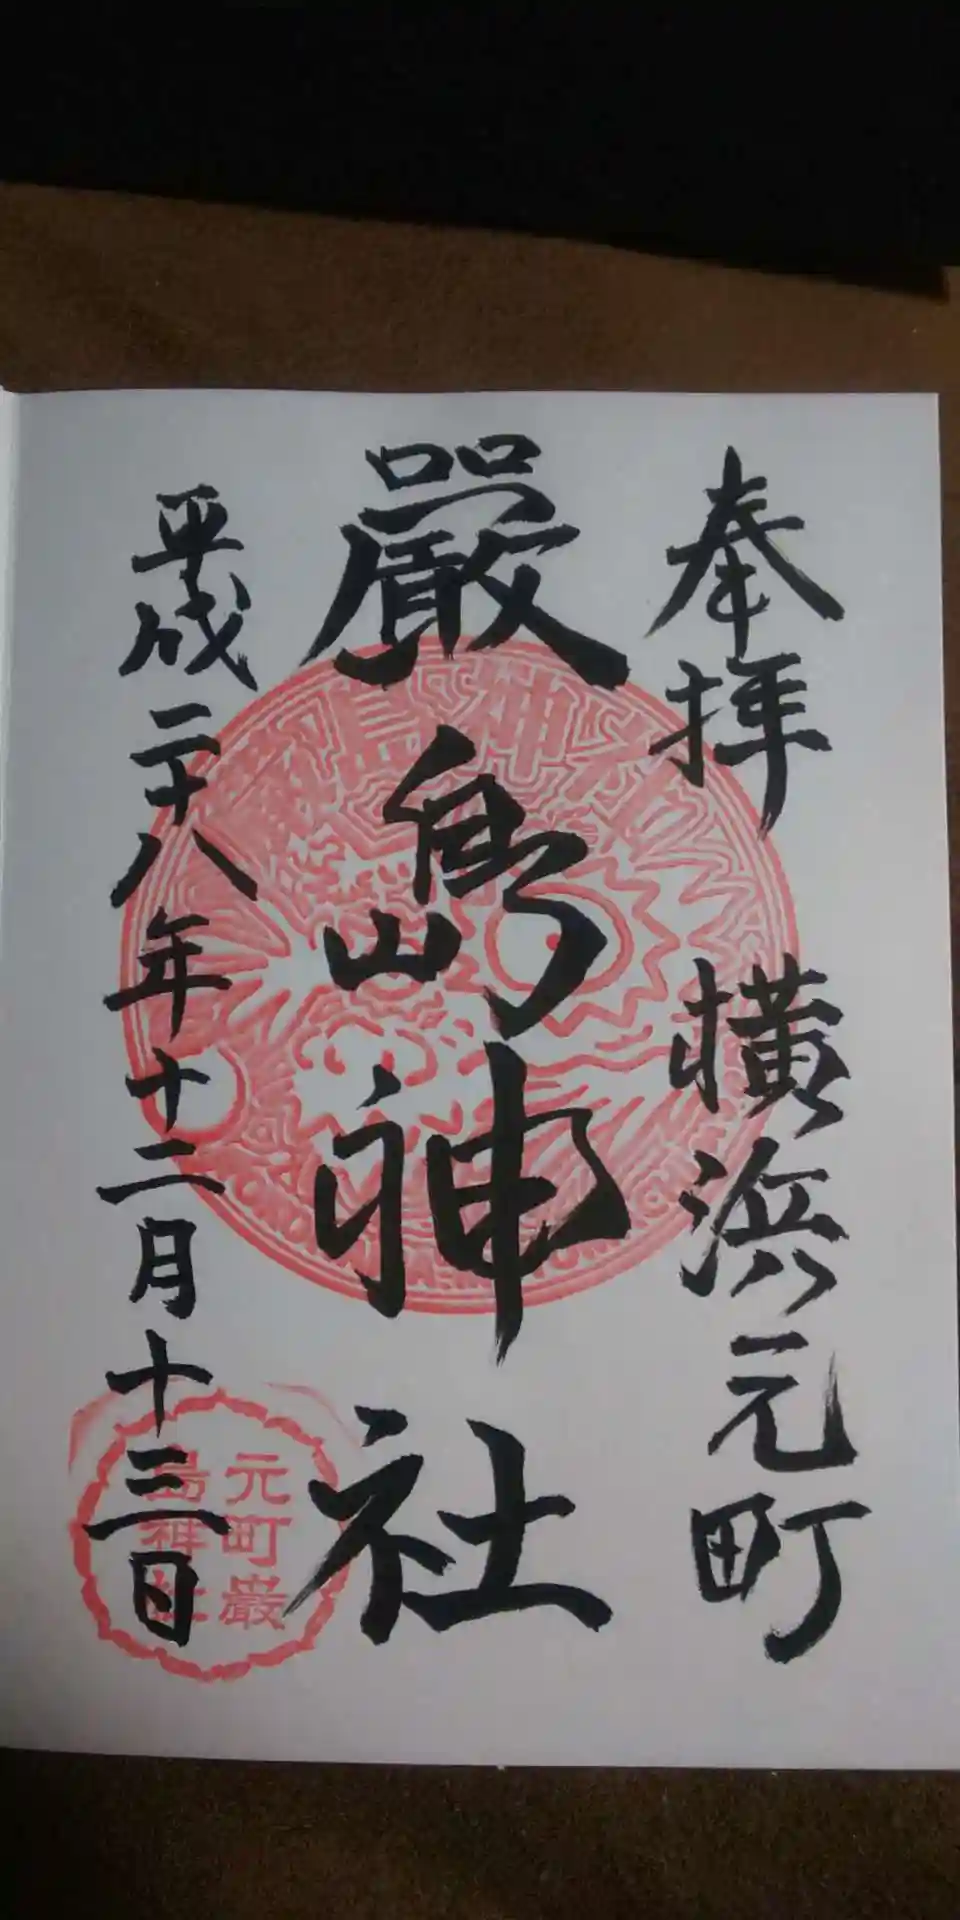 奉拝 横浜元町
嚴嶋神社
平成二十八年十二月十三日
嚴島神社
元町嚴
島神社